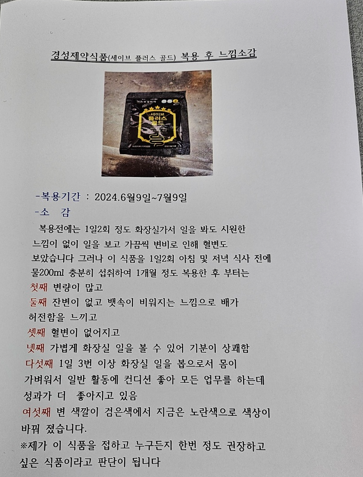 경성제약식품(세이브 플러스 골드) 복용 후 느낌소감
세이브
플러스
골드
-복용기간 : 2024.6월9일~7월9일
-소 감
복용전에는 1일2회 정도 화장실가서 일을 봐도 시원한
느낌이 없이 일을 보고 가끔씩 변비로 인해 혈변도
보았습니다 그러나 이 식품을 1일2회 아침 및 저녁 식사 전에
물200ml 충분히 섭취하여 1개월 정도 복용한 후 부터는
첫째 변량이 많고
둘째 잔변이 없고 뱃속이 비워지는 느낌으로 배가
허전함을 느끼고
셋째 혈변이 없어지고
넷째 가볍게 화장실 일을 볼 수 있어 기분이 상쾌함
다섯째 1일 3번 이상 화장실 일을 봄으로서 몸이
가벼워서 일반 활동에 컨디션 좋아 모든 업무를 하는데
성과가 더 좋아지고 있음
여섯째 변 색깔이 검은색에서 지금은 노란색으로 색상이
바꿔 졌습니다.
※제가 이 식품을 접하고 누구든지 한번 정도 권장하고
싶은 식품이라고 판단이 됩니다